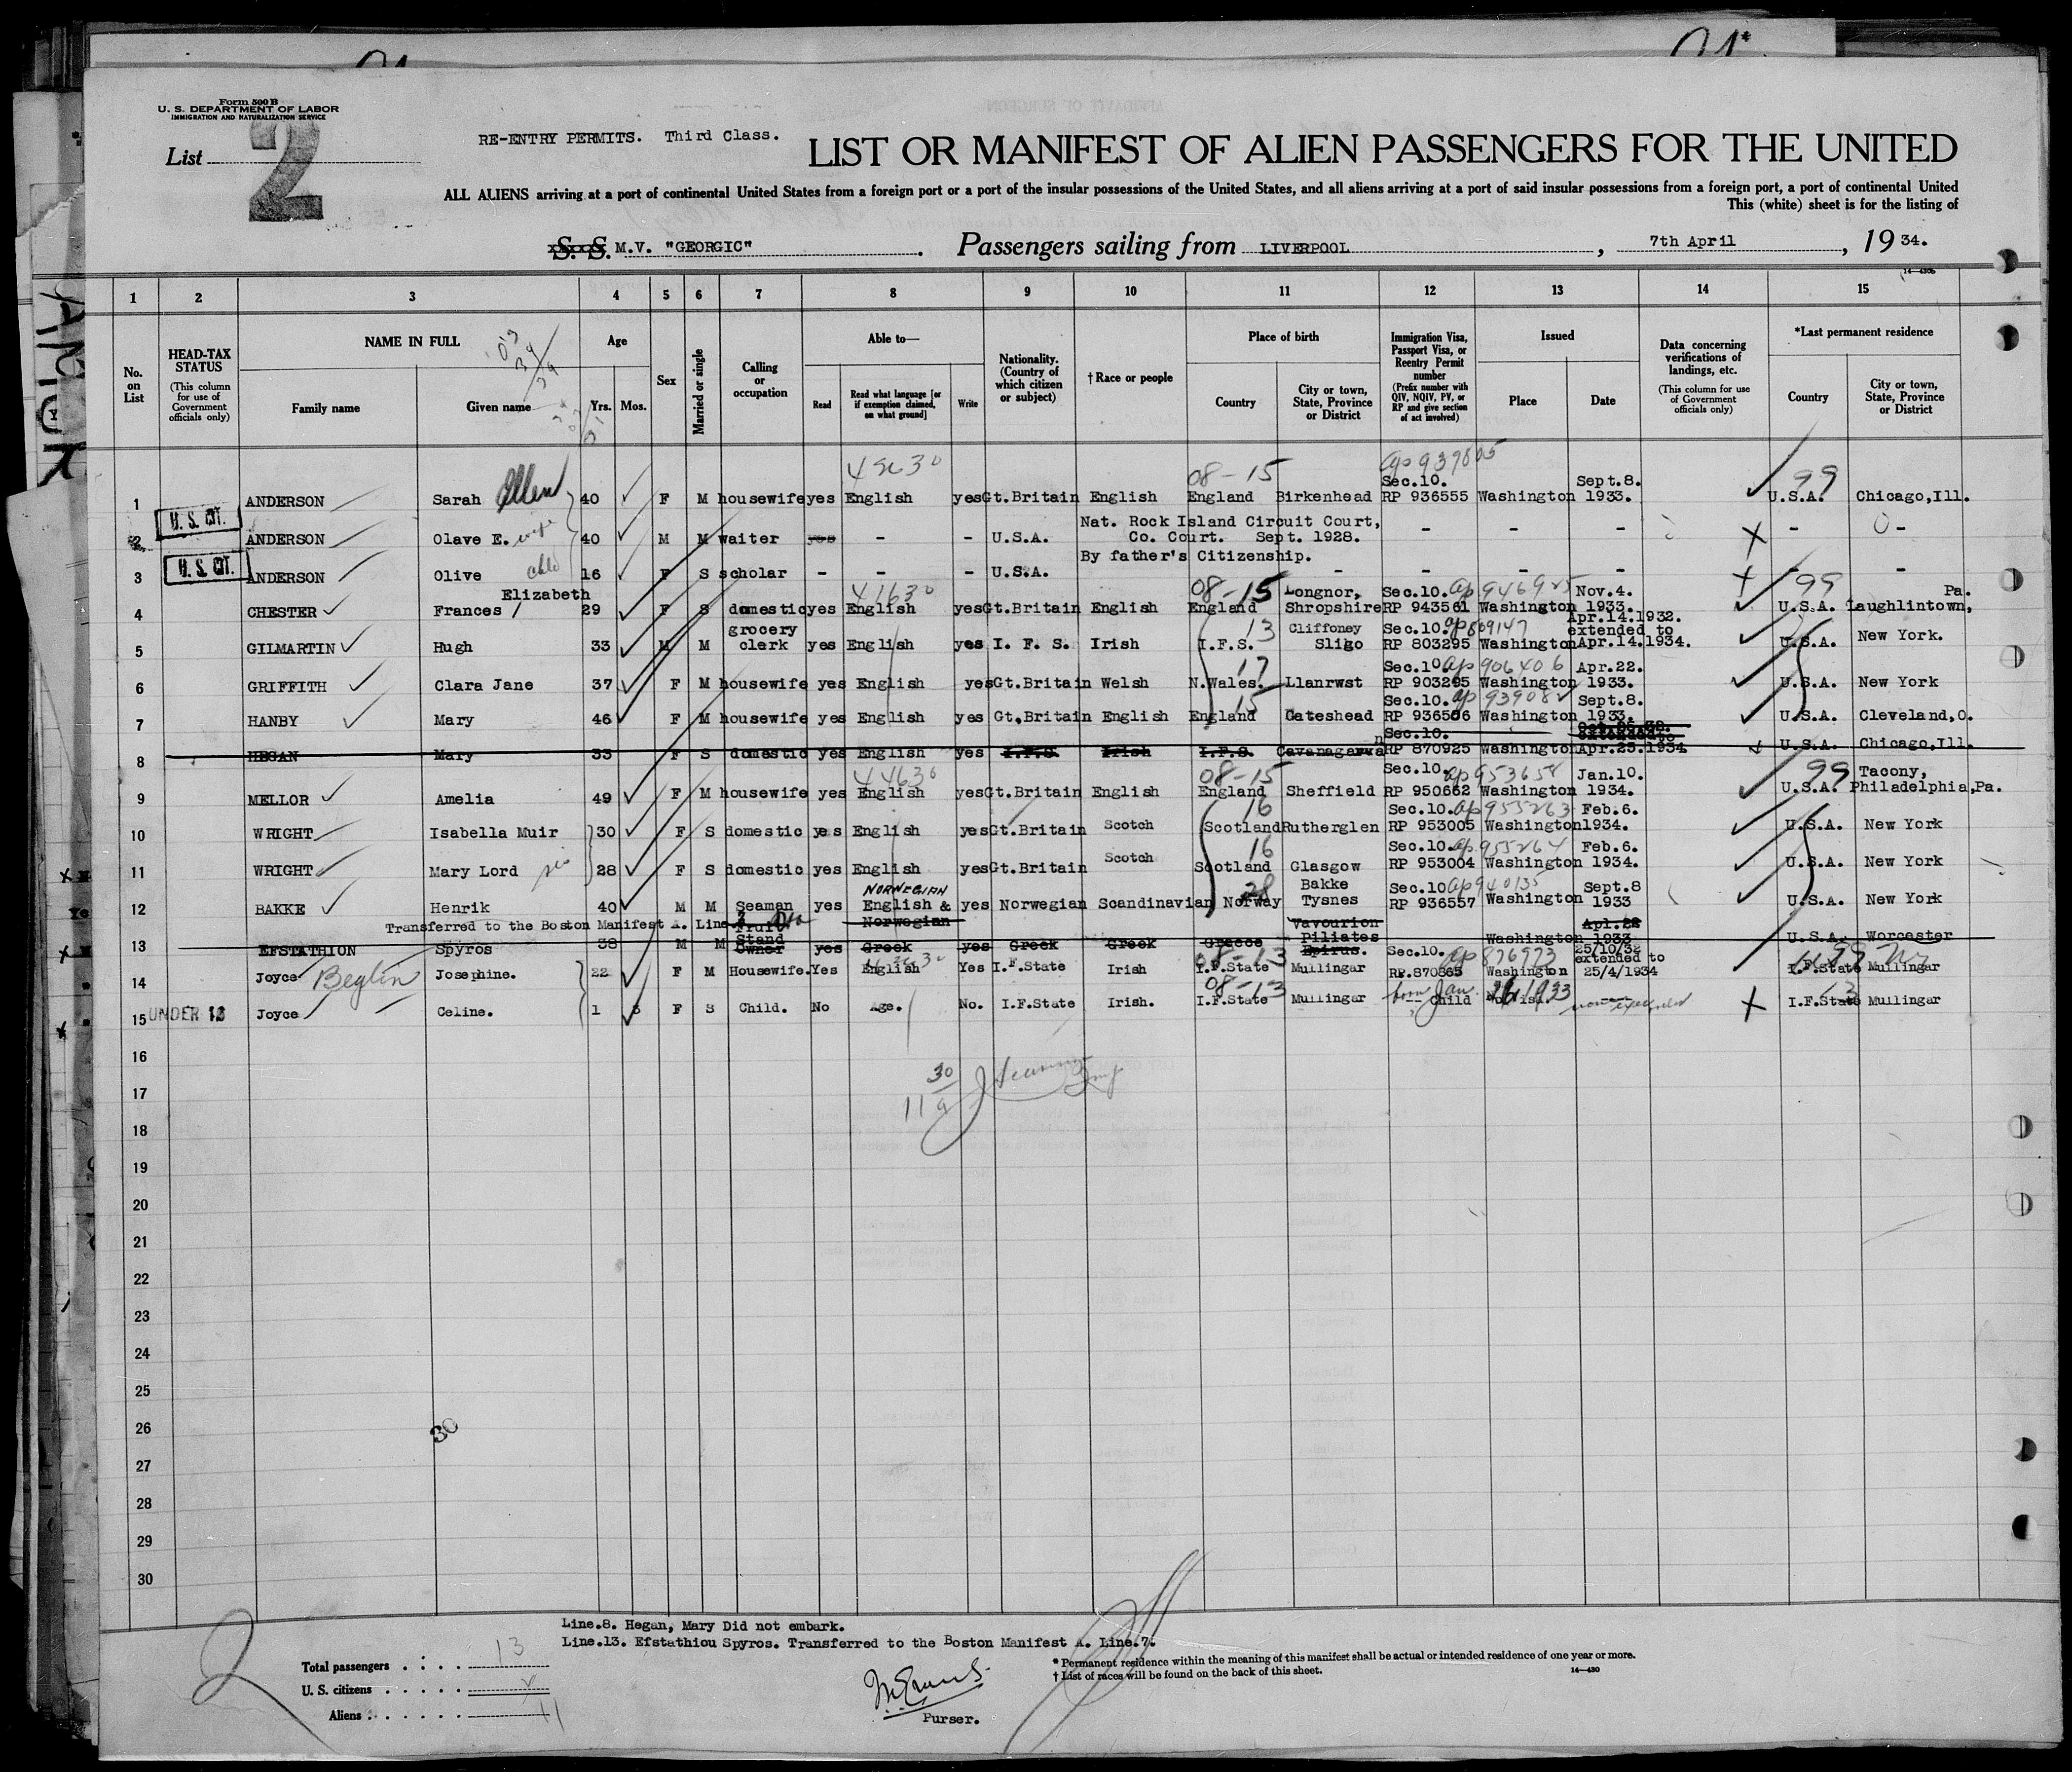 Form 500 B
U. S. DEPARTMENT OF LABOR
IMMIGRATION AND NATURALIZATION SERVICE
List 2
RE-ENTRY PERMITS. Third Class.
LIST OR MANIFEST OF ALIEN PASSENGERS FOR THE UNITED
ALL ALIENS arriving at a port of continental United States from a foreign port or a port of the insular possessions of the United States, and all aliens arriving at a port of said insular possessions from a foreign port, a port of continental United
This (white) sheet is for the listing of
S. S. M.V. "GEORGIC" . Passengers sailing from LIVERPOOL , 7th April , 19 34.
1 2 3 4 5 6 7 8 9 10 11 12 13 14 15
No. on List
HEAD-TAX STATUS (This column for use of Government officials only)
NAME IN FULL Family name Given name
Age Yrs. Mos.
Sex
Married or single
Calling or occupation
Able to— Read Read what language [or if exemption claimed, on what ground] Write
Nationality. (Country of which citizen or subject)
† Race or people
Place of birth Country City or town, State, Province or District
Immigration Visa, Passport Visa, or Reentry Permit number (Prefix number with QIV, NQIV, PV, or RP and give section of act involved)
Issued Place Date
Data concerning verifications of landings, etc. (This column for use of Government officials only)
*Last permanent residence Country City or town, State, Province or District
08-15 99
1 ANDERSON Sarah Allen 40 F M housewife yes English yes Gt.Britain English England Birkenhead Sec.10. RP 936555 Washington Sept.8. 1933. U.S.A. Chicago,Ill.
U. S. CIT.
2 ANDERSON Olave E. wife 40 M M waiter yes - - U.S.A. Nat. Rock Island Circuit Court, Co. Court. Sept. 1928. - - - - -
U. S. CIT.
3 ANDERSON Olive chld 16 F S scholar - - - U.S.A. By father's Citizenship. - - - - - - -
41630 08-15 99
4 CHESTER Frances Elizabeth 29 F S domestic yes English yes Gt.Britain English England Longnor, Shropshire Sec.10. RP 943561 Washington Nov.4. 1933. U.S.A. Laughlintown, Pa.
5 GILMARTIN Hugh 33 M M grocery clerk yes English yes I. F. S. Irish I.F.S. 13 Cliffoney Sligo Sec.10. ap 809147 RP 803295 Washington Apr.14.1932. extended to Apr.14.1934. U.S.A. New York.
6 GRIFFITH Clara Jane 37 F M housewife yes English yes Gt.Britain Welsh N.Wales. 17 Llanrwst Sec.10. ap 906406 RP 903295 Washington Apr.22. 1933. U.S.A. New York
7 HANBY Mary 46 F M housewife yes English yes Gt.Britain English England 15 Gateshead Sec.10. RP 936506 Washington Sept.8. 1933. U.S.A. Cleveland,O.
8 HEGAN Mary 33 F S domestic yes English yes I.F.S. Irish I.F.S. Sec.10. RP 870925 Washington extended to Apr.25.1934 U.S.A. Chicago,Ill.
44630 08-15 99
9 MELLOR Amelia 49 F M housewife yes English yes Gt.Britain English England Sheffield Sec.10. ap 953658 RP 950662 Washington Jan.10. 1934. U.S.A. Tacony, Philadelphia,Pa.
10 WRIGHT Isabella Muir 30 F S domestic yes English yes Gt.Britain Scotch Scotland 16 Rutherglen Sec.10. ap 955263 RP 953005 Washington Feb.6. 1934. U.S.A. New York
11 WRIGHT Mary Lord sis 28 F S domestic yes English yes Gt.Britain Scotch Scotland 16 Glasgow Sec.10. ap 955264 RP 953004 Washington Feb.6. 1934. U.S.A. New York
12 BAKKE Henrik 40 M M Seaman yes NORWEGIAN English & Norwegian yes Norwegian Scandinavian Norway 28 Bakke Tysnes Sec.10 ap 940135 RP 936557 Washington Sept.8 1933 U.S.A. New York
Transferred to the Boston Manifest A. Line 7
13 EFSTATHION Spyros 38 M M Fruit Stand Owner yes Greek yes Greek Greek Greece Vavourion Piliates Epirus. Washington Apl.22 1933 U.S.A. Worcester
14 Joyce Beglin Josephine. 22 F M Housewife. Yes English Yes I.F.State Irish 08-13 I.F.State Mullingar Sec.10. ap 876973 RP.870865 Washington 25/10/32 extended to 25/4/1934 I.F.State Mullingar
15 UNDER 16 Joyce Celine. 1 3 F S Child. No Age. No. I.F.State Irish. 08-13 I.F.State Mullingar born Jan. 1933 Child I.F.State Mullingar
16
17
18
19
20
21
22
23
24
25
26
27
28
29
30
30
11 a
30
Line.8. Hegan, Mary Did not embark.
Line.13. Efstathiou Spyros. Transferred to the Boston Manifest A. Line.7.
Total passengers . . . . 13
U. S. citizens . . . . .
Aliens . . . . . . 11
2
Purser.
* Permanent residence within the meaning of this manifest shall be actual or intended residence of one year or more.
† List of races will be found on the back of this sheet.
14—430